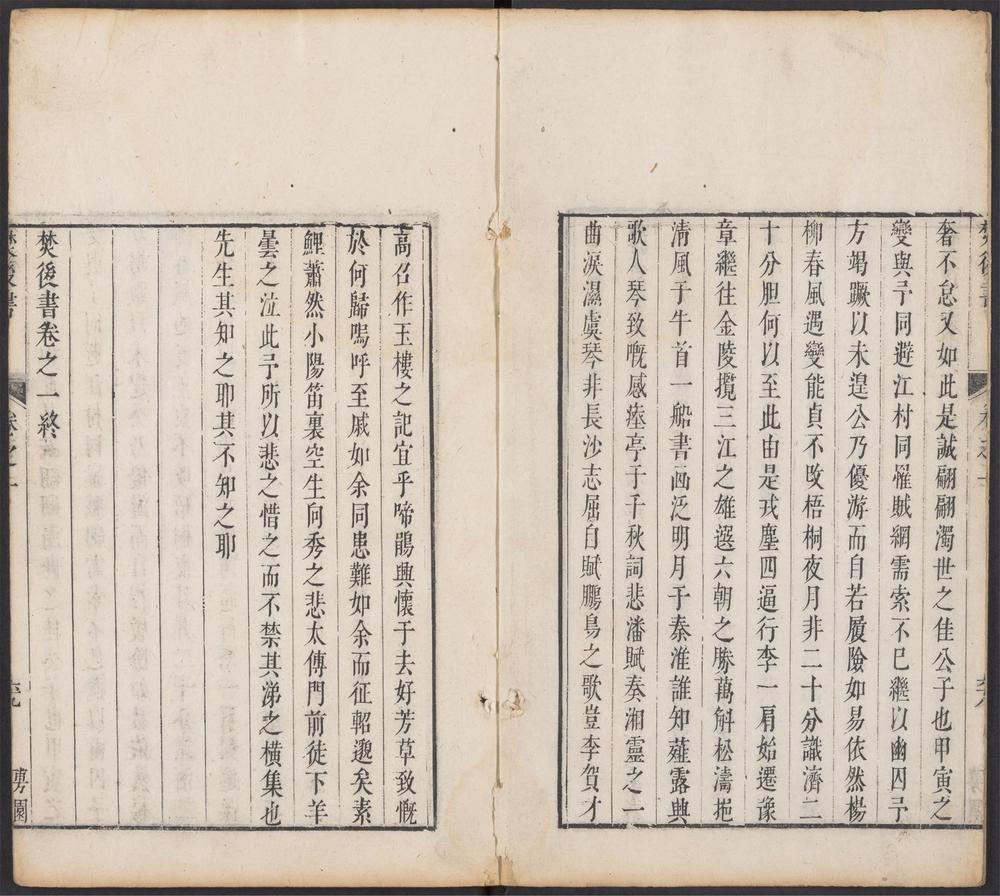 奢不怠又如此是誠翩翩濁世之佳公子也甲寅之
變與予同避江村同罹賊網需索不已繼以幽囚予
方竭蹶以未遑公乃優游而自若履險如易依然楊
柳春風遇變能貞不攺梧桐夜月非二十分識濟二
十分胆何以至此由是戎塵四逼行李一肩始遷豫
章繼往金陵攬三江之雄選六朝之勝萬斛松濤挹
淸風于牛首一船書画泛明月于秦淮誰知薤露興
歌人琴致嘅感瘞亭于千秋詞悲潘賦奏湘靈之一
曲淚濕虞琴非長沙志屈自賦鵬鳥之歌豈李賀才
高召作玉樓之記宜乎啼鵑興懷于去好芳草致慨
於何歸嗚呼至戚如余同患難如余而征軺邈矣素
鯉蕭然小陽笛裏空生向秀之悲太傅門前徒下羊
曇之泣此予所以悲之惜之而不禁其涕之橫集也
先生其知之耶其不知之耶
焚後書卷之一終
焚後書
卷之一